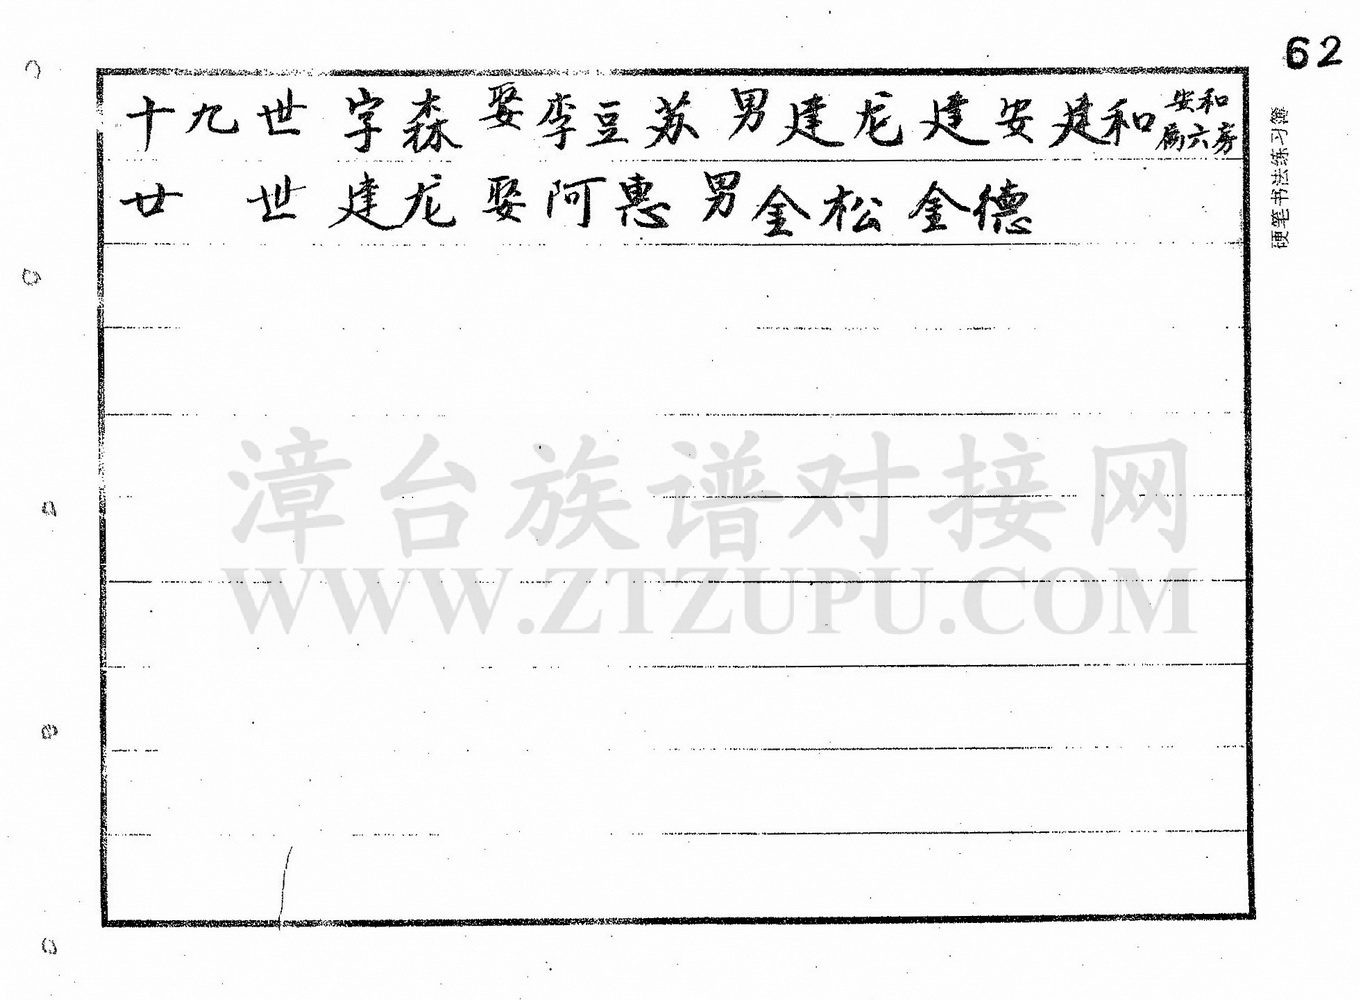 62
十九世 字森 娶李豆苏 男建龙 建安 建和 安和属六房
廿 世 建龙 娶阿惠 男金松 金德
硬笔书法练习簿
漳台族谱对接网
WWW.ZTZUPU.COM